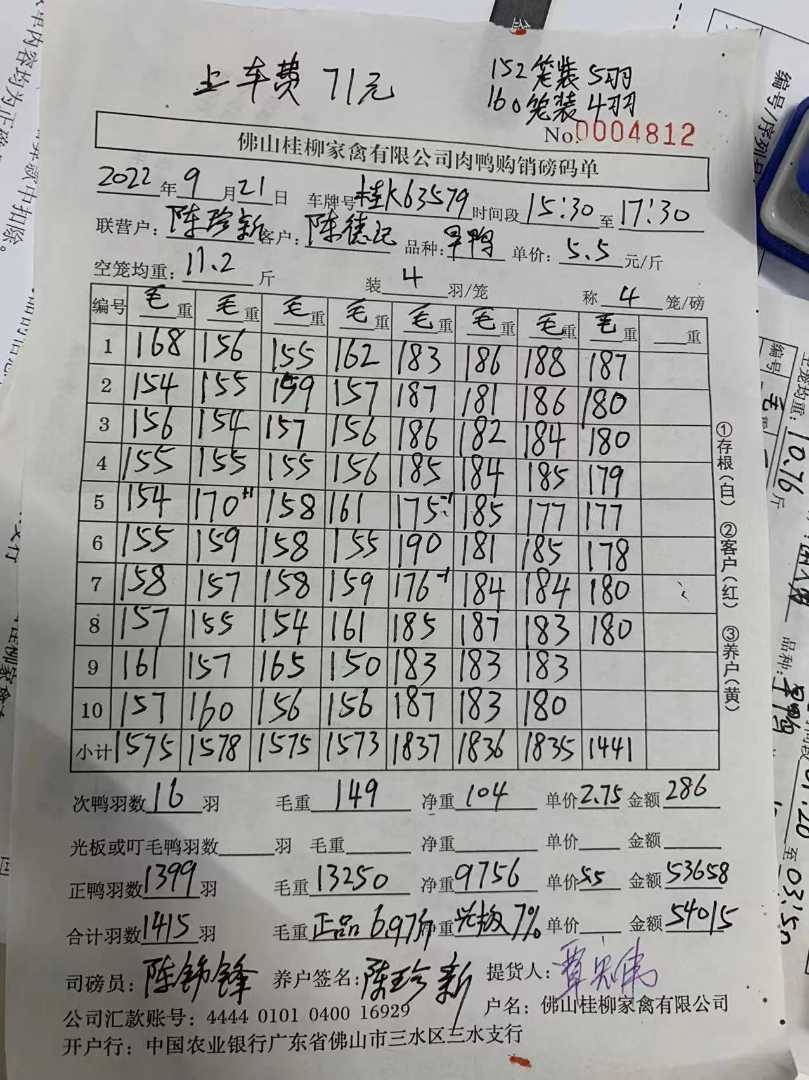 上车费 71元
152笼装5羽
160笼装4羽
No.0004812
佛山桂柳家禽有限公司肉鸭购销磅码单
2022年9月21日 车牌号 桂K63579 时间段 15:30 至 17:30
联营户: 陈珍新 客户: 陈德记 品种: 旱鸭 单价: 5.5 元/斤
空笼均重: 11.2 斤 装 4 羽/笼 称 4 笼/磅
编号 毛重 毛重 毛重 毛重 毛重 毛重 毛重 毛重 重
1 168 156 155 162 183 186 188 187
2 154 155 159 157 187 181 186 180
3 156 154 157 156 186 182 184 180
4 155 155 155 156 185 184 185 179
5 154 170+1 158 161 175-1 185 177 177
6 155 159 158 155 190 181 185 178
7 158 157 158 159 176-1 184 184 180
8 157 155 154 161 185 187 183 180
9 161 157 165 150 183 183 183
10 157 160 156 156 187 183 180
小计 1575 1578 1575 1573 1837 1836 1835 1441
次鸭羽数 16 羽 毛重 149 净重 104 单价 2.75 金额 286
光板或叮毛鸭羽数 羽 毛重 净重 单价 金额
正鸭羽数 1399 羽 毛重 13250 净重 9756 单价 5.5 金额 53658
合计羽数 1415 羽 毛重 正品6.97斤 重 光板7% 单价 金额 54015
司磅员: 陈锦锋 养户签名: 陈珍新 提货人:
公司汇款账号: 4444 0101 0400 16929 户名: 佛山桂柳家禽有限公司
开户行: 中国农业银行广东省佛山市三水区三水支行
①存根(白) ②客户(红) ③养户(黄)
编号/序列号
均重: 10.76 斤
编号
品种: 旱鸭
至 03:50